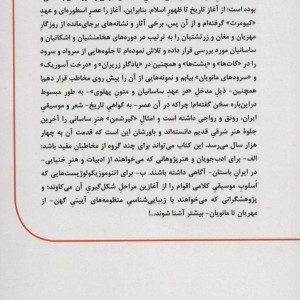 بوده است؛ از آغاز تاریخ تا ظهور اسلام. بنابراین، آغاز را عصر اسطوره‌ای و عهد
«کیومرث» گرفته‌ام و از آن پس، برخی آثار و نشانه‌های برجای‌مانده از روزگارِ
مهریان و مغان و زرتشتیان را به ترتیب در دوره‌های هخامنشیان و اشکانیان و
ساسانیان مورد بررسی قرار داده و تلاش نموده‌ام تا جلوه‌هایی از سرواد و سرود
را در «گات‌ها» و «یشت‌ها» و همچنین در «یادگار زریران» و «درخت آسوریک»
و «سرودهای مانویان» بیابم و نمونه‌هایی از آن را پیش روی مخاطب قرار دهم؛
همچنین- ذیلِ مدخلِ «در عهدِ ساسانیان و متونِ پهلوی»- به طور مبسوط
دراین‌باره سخن گفته‌ام؛ چراکه در آن عصر- به گواهیِ تاریخ- شعر و موسیقیِ
ایران، رونق و رواجی داشته است و امثالِ «گیرشمن» هنرِ ساسانی را آخرین
جلوهٔ هنرِ شرقیِ قدیم دانسته‌اند و باورشان این است که قدمت آن به چهار
هزار سال می‌رسد. این کتاب می‌تواند برای چند گروه از مخاطبان مفید باشد:
الف- برای ادب‌جویان و هنرپژوهانی که می‌خواهند از ادبیات و هنرِ خنیایی-
در ایران باستان- آگاهی داشته باشند. ب- برای اتنوموزیکولوژیست‌هایی که
اُسلوبِ موسیقیِ کلامیِ اقوام را از آغازینِ مراحلِ شکل‌گیریِ آن می‌کاوند؛ و
پژوهشگرانی که می‌خواهند با زیبایی‌شناسیِ منظومه‌های آیینیِ کهن- از
مهریان تا مانویان- بیشتر آشنا شوند..!